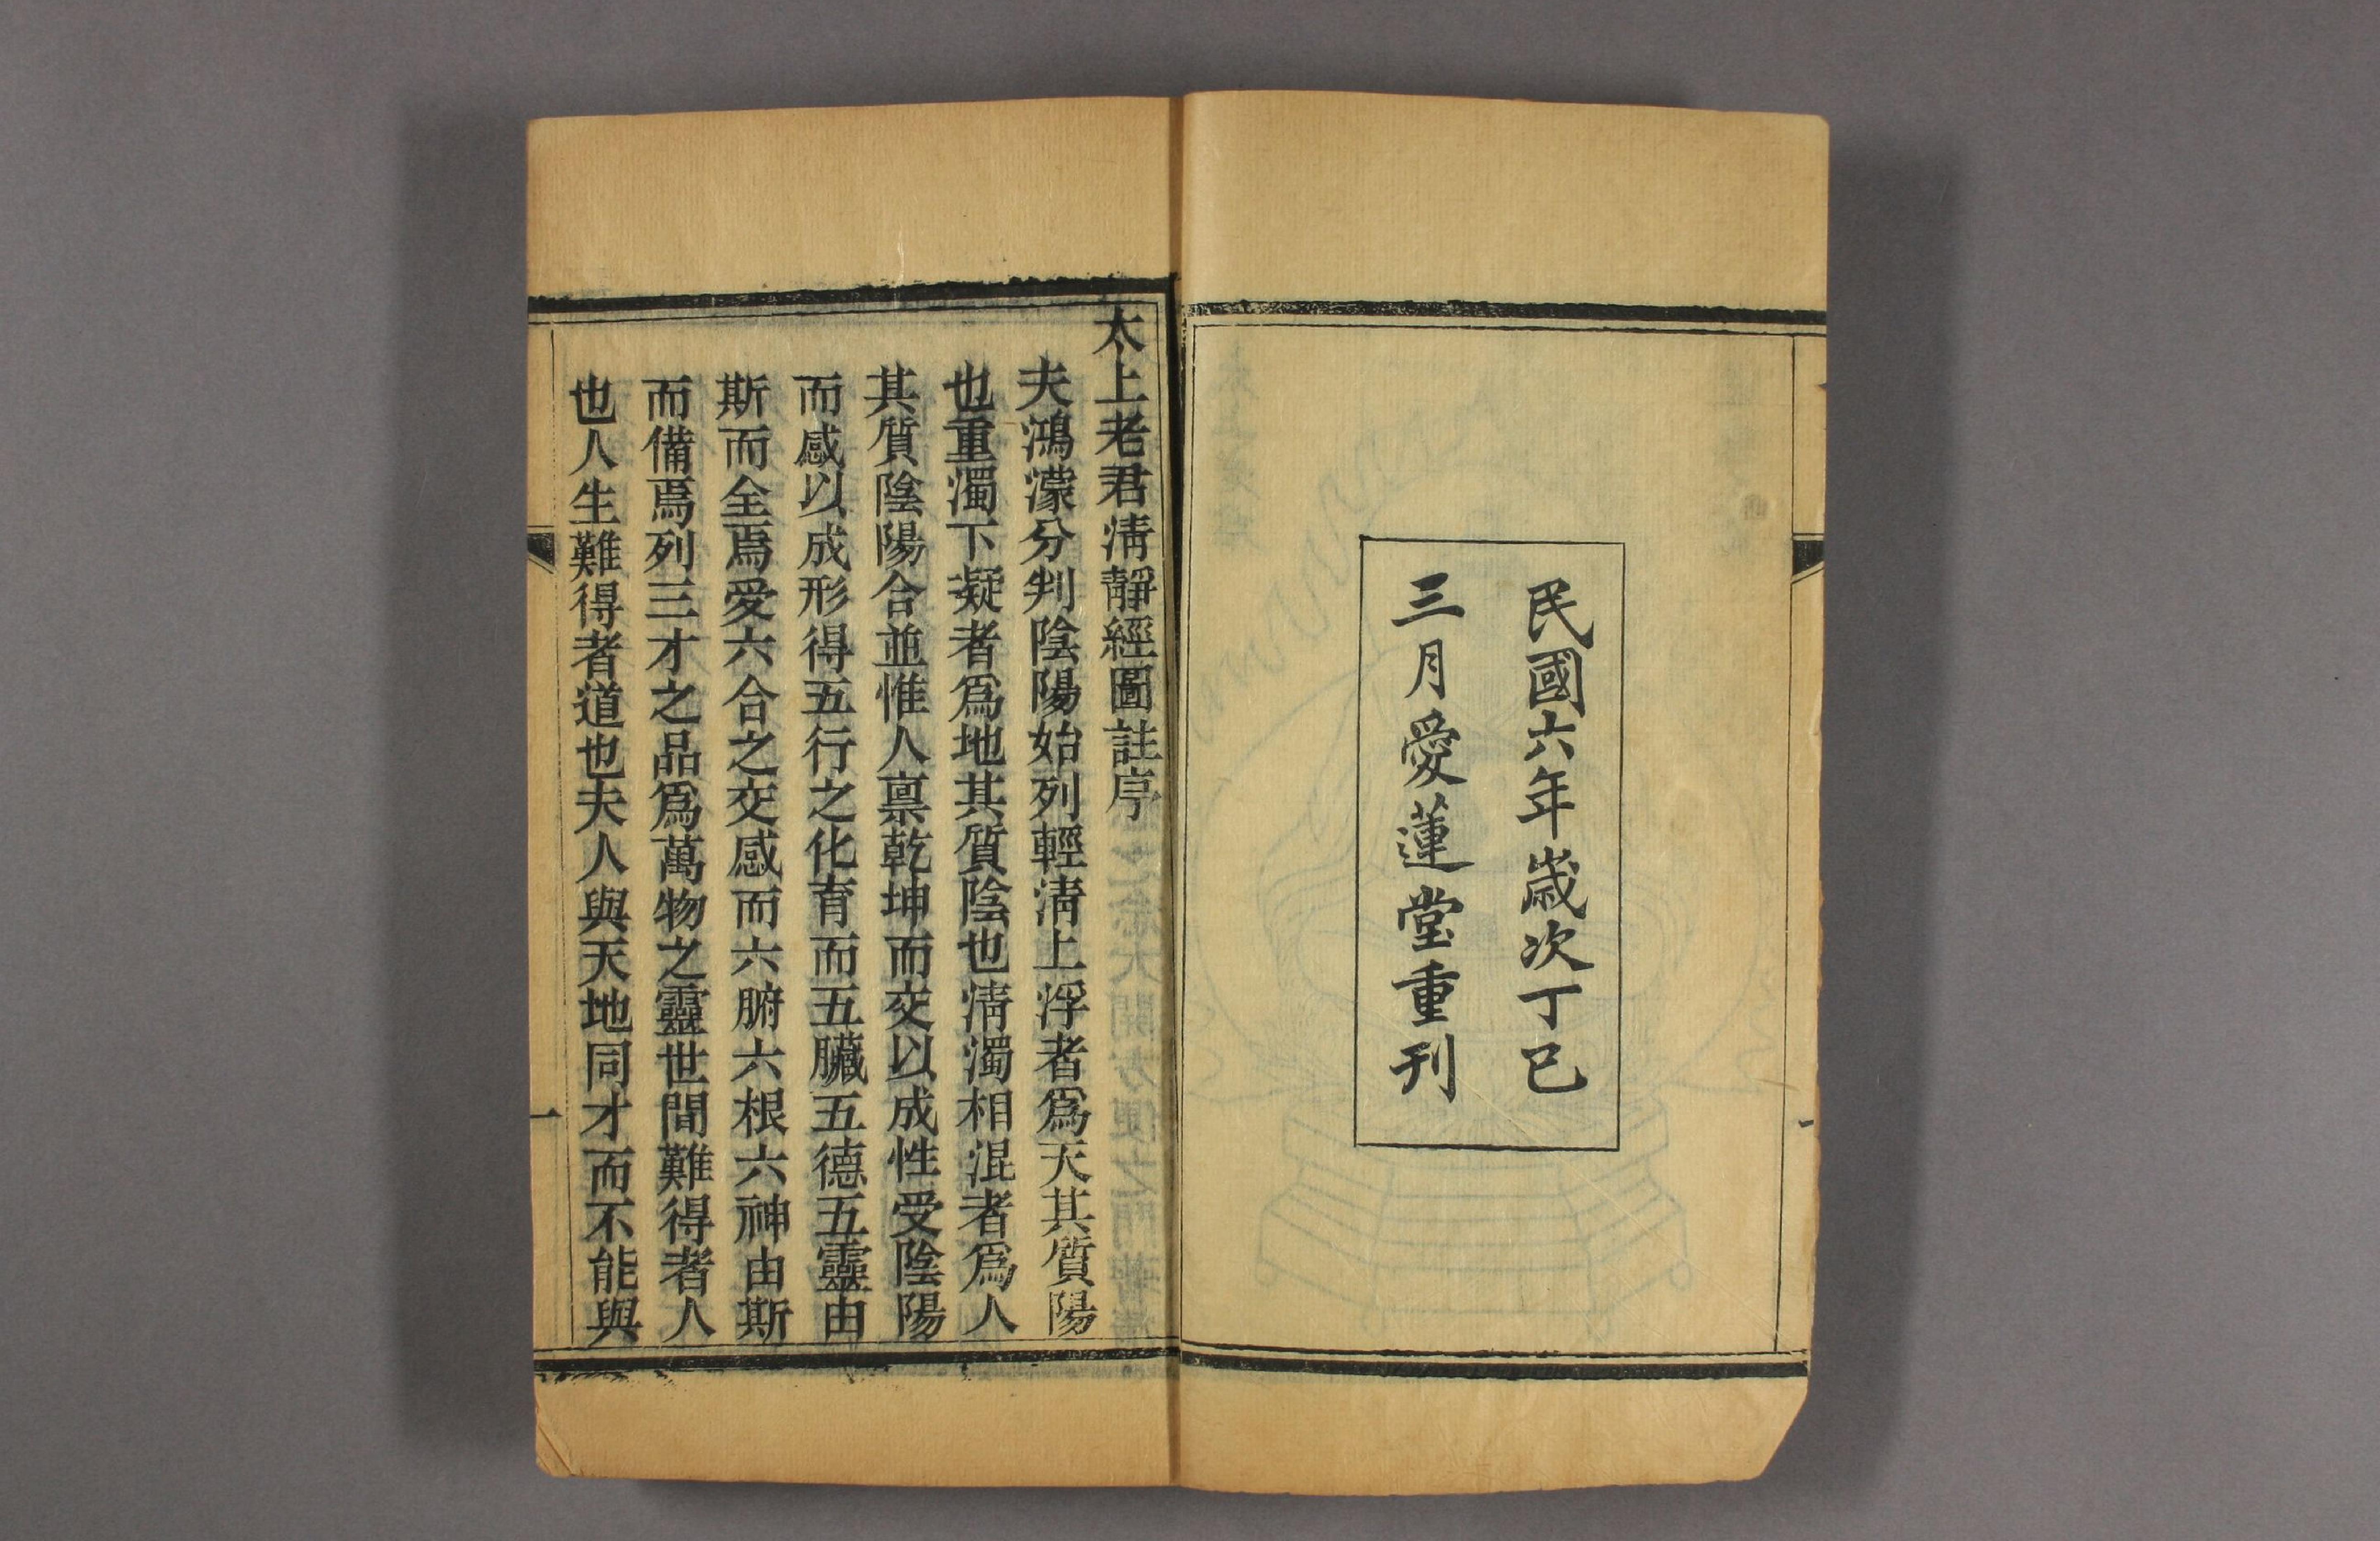 民國六年歲次丁巳
三月愛蓮堂重刊
太上老君清靜經圖註序
夫鴻濛分判陰陽始列輕清上浮者爲天其質陽
也重濁下凝者爲地其質陰也清濁相混者爲人
其質陰陽合並惟人禀乾坤而交以成性受陰陽
而感以成形得五行之化育而五臟五德五靈由
斯而全焉愛六合之交感而六腑六根六神由斯
而備焉列三才之品爲萬物之靈世間難得者人
也人生難得者道也夫人與天地同才而不能與
一